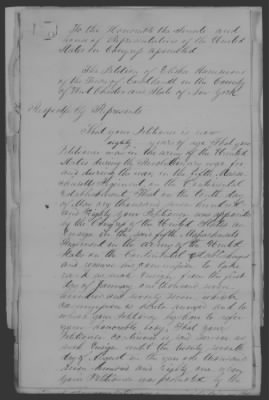 To the Honorable the Senate and
house of Representatives of the United
States in Congress assembled
The Petition of Elisha Hammond
of the Town of Cortlandt in the County
of West Chester and State of New York
Respectfully Represents
That your Petitioner is now
eighty years of age That your
Petitioner was in the army of the United
States during the Revolutionary war for
and during the war, in the fifth Massa
chusetts Regiment on the Continental
Establishment, That on the tenth day
of May one thousand seven hundred
and Eighty your Petitioner was appointed
by the Congress of the United States an
Ensign in the fifth Massachusetts
Regiment in the army of the United
States on the Continental establishment
and received his commission to take
rank as such Ensign from the first
day of January one thousand seven
hundred and seventy seven which
commission is in and to
which can be had to refer
your honorable body, That your
Petitioner continued in said service as
such Ensign until the twenty seventh
day of August in the year one thousand
seven hundred and Eighty one when
your Petitioner was promoted by the